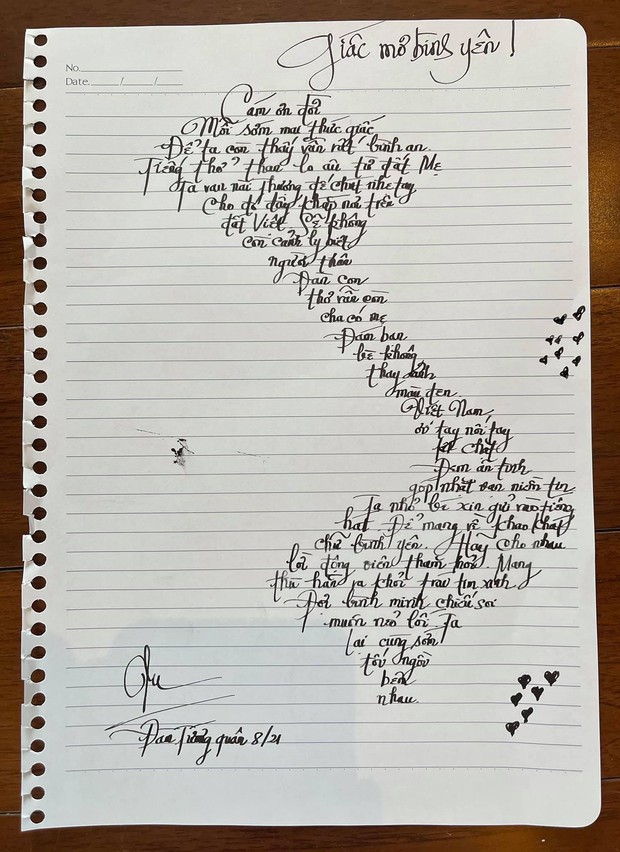 Giấc mơ bình yên!
No.
Date. / /
Cám ơn đời
Mỗi sớm mai thức giấc
Để ta còn thấy vẫn rất bình an.
Tiếng thở than lo âu từ đất Mẹ
Ta van nài thượng đế chút nhẹ tay
Cho đó đây khắp nơi trên
đất Việt Sẽ không
còn cảnh ly biệt
người thân
Đàn con
thơ vẫn còn
cha có mẹ
Đám bạn
bè không
thay ảnh
màu đen
Việt Nam
ơi tay nối tay
kết chặt
Đem ân tình
góp nhặt vạn niềm tin
Ta nhỏ bé xin gửi vào tiếng
hát Để mang về khao khát
chữ bình yên. Hãy cho nhau
lời động viên thăm hỏi. Mang
thù hận ra khỏi trái tim xanh
Đợi bình minh chiếu soi
muôn nẻo lối Ta
lại cùng sớm
tối ngồi
bên
nhau.
Đàm Tướng quân 8/21